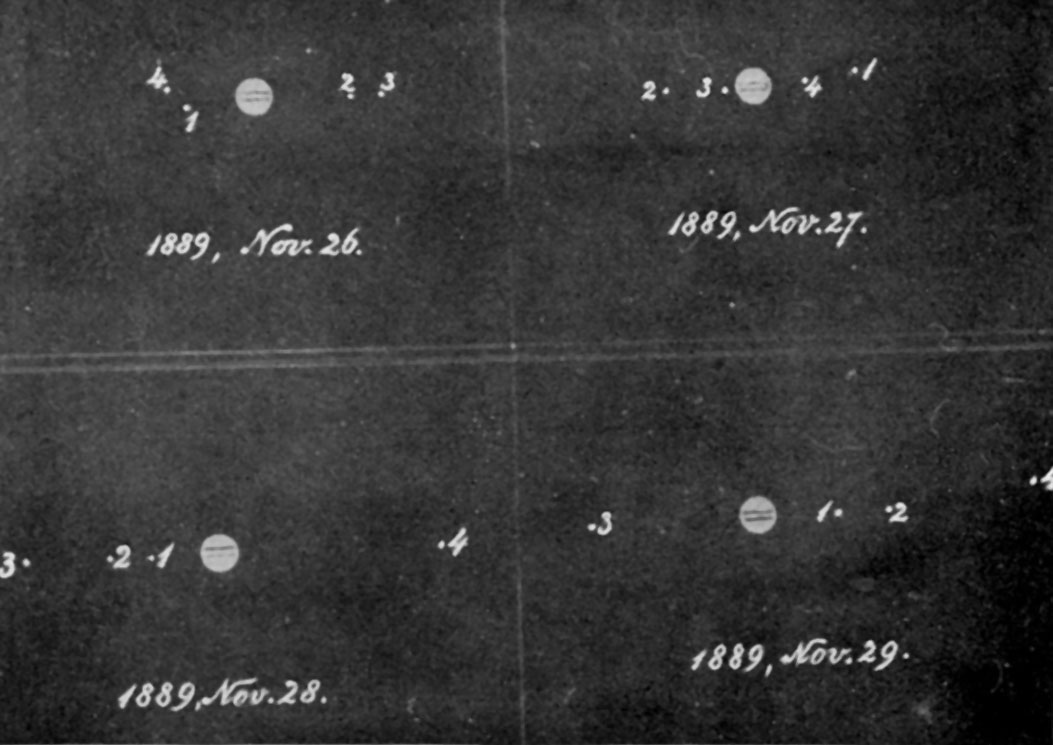 4 1 2 3
1889, Nov. 26.
2 3 4 1
1889, Nov. 27.
3 2 1 4
1889, Nov. 28.
3 1 2 4
1889, Nov. 29.